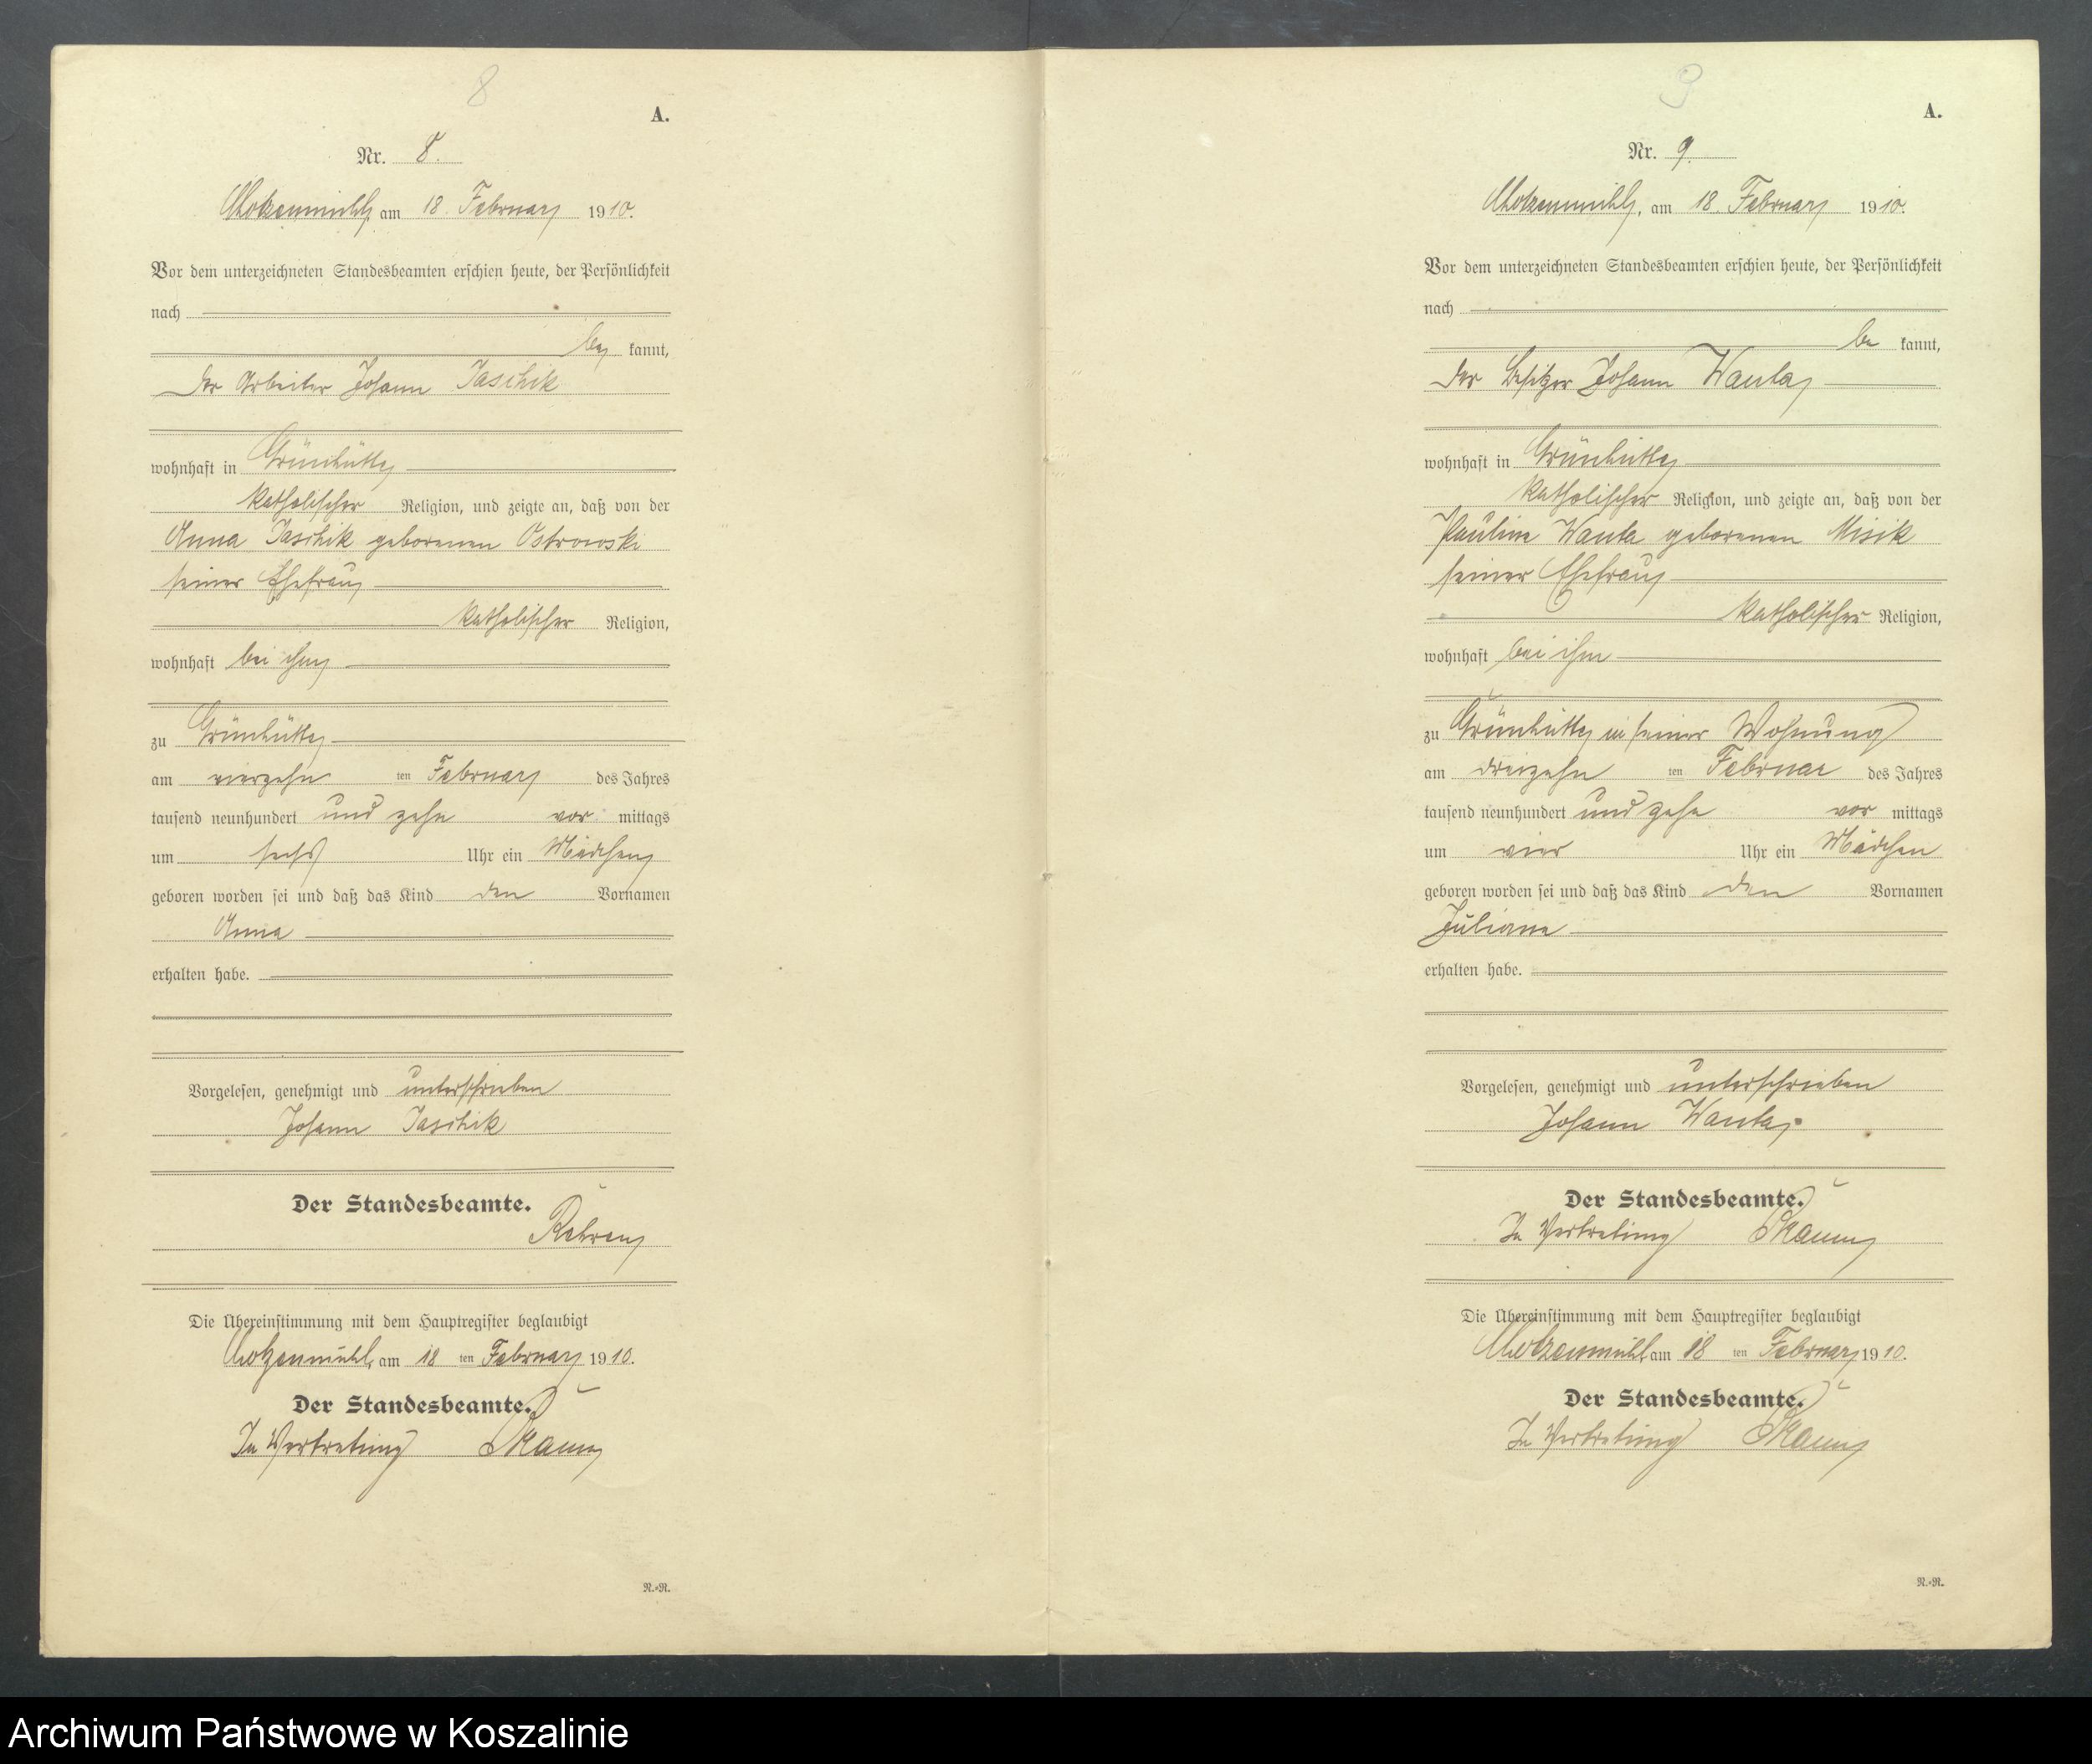 8
A.
Nr. 8.
Chotzenmühl, am 18. Februar 1910.
Vor dem unterzeichneten Standesbeamten erschien heute, der Persönlichkeit
nach
be kannt,
der Arbeiter Johann Jaschik
wohnhaft in Grünhütte
katholischer Religion, und zeigte an, daß von der
Anna Jaschik geborenen Ostrowski
seiner Ehefrau
katholischer Religion,
wohnhaft bei ihm
zu Grünhütte
am vierzehn ten Februar des Jahres
tausend neunhundert und zehn vor mittags
um sechs Uhr ein Mädchen
geboren worden sei und daß das Kind den Vornamen
Anna
erhalten habe.
Vorgelesen, genehmigt und unterschrieben
Johann Jaschik
Der Standesbeamte.
Die Übereinstimmung mit dem Hauptregister beglaubigt
Chotzenmühl, am 18 ten Februar 1910.
Der Standesbeamte.
In Vertretung
R.-R.
9
A.
Nr. 9.
Chotzenmühl, am 18. Februar 1910.
Vor dem unterzeichneten Standesbeamten erschien heute, der Persönlichkeit
nach
be kannt,
der Besitzer Johann Wanta
wohnhaft in Grünhütte
katholischer Religion, und zeigte an, daß von der
Pauline Wanta geborenen Misik
seiner Ehefrau
katholischer Religion,
wohnhaft bei ihm
zu Grünhütte in seiner Wohnung
am dreizehn ten Februar des Jahres
tausend neunhundert und zehn vor mittags
um vier Uhr ein Mädchen
geboren worden sei und daß das Kind den Vornamen
Juliane
erhalten habe.
Vorgelesen, genehmigt und unterschrieben
Johann Wanta.
Der Standesbeamte.
In Vertretung
Die Übereinstimmung mit dem Hauptregister beglaubigt
Chotzenmühl, am 18 ten Februar 1910.
Der Standesbeamte.
In Vertretung
R.-R.
Archiwum Państwowe w Koszalinie